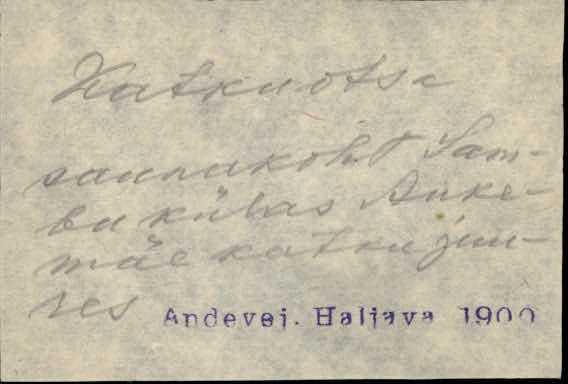 Katkuotsa
saunakoht Sam-
bu külas Anke-
mäe katku juu-
res Andevei. Haljava 1900